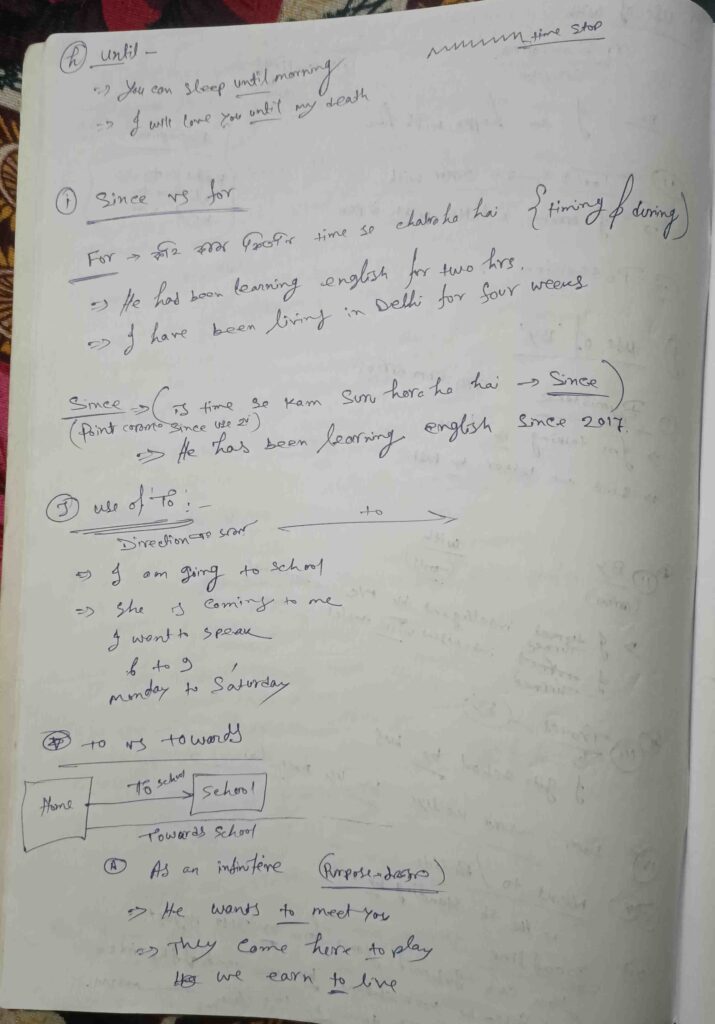 (h) until -
time stop
=> You can sleep until morning
=> I will love you until my death
(i) Since vs for
For → time se chalraha hai { timing & during )
=> He had been learning english for two hrs.
=> I have been living in Delhi for four weeks
Since => ( is time se kam suru horaha hai → Since )
(Point Since use
=> He has been learning english since 2017.
(J) use of 'To' :-
Direction
to
=> I am going to school
=> She is coming to me
I want to speak
6 to 9
Monday to Saturday
to vs towards
Home
To school
School
Towards School
(A) As an infinitive (Purpose
=> He wants to meet you
=> They come here to play
we earn to live